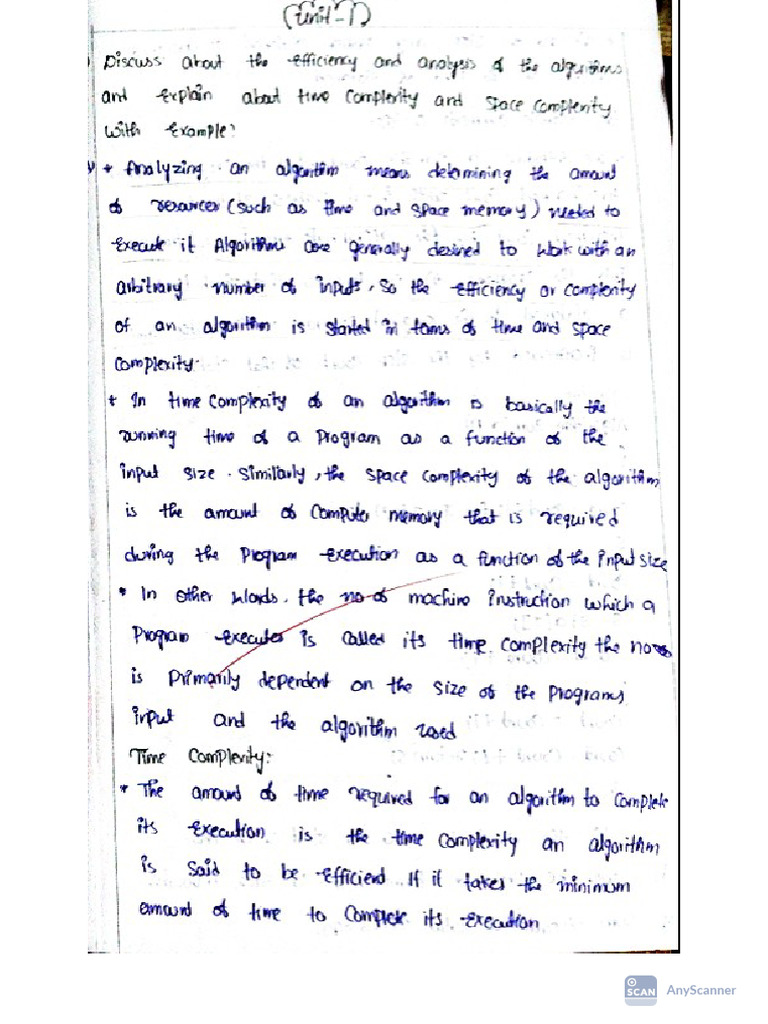 (Unit-1)
Discuss about the efficiency and analysis of the algorithms
and explain about time complexity and space complexity
with example?
* Analyzing an algorithm means determining the amount
of resources (such as time and space memory) needed to
execute it Algorithms are generally desined to work with an
arbitrary number of inputs, so the efficiency or complexity
of an algorithm is started in terms of time and space
complexity.
* In time complexity of an algorithm is basically the
running time of a program as a function of the
input size. similarly, the space complexity of the algorithm
is the amount of computer memory that is required
during the program execution as a function of the input size
* In other words, the no of machine instruction which a
program executes is called its time complexity the no
is primarily dependent on the size of the programs
input and the algorithm used
Time Complexity:
* The amount of time required for an algorithm to complete
its execution is the time complexity an algorithm
is said to be efficient if it takes the minimum
amount of time to complete its execution
SCAN AnyScanner